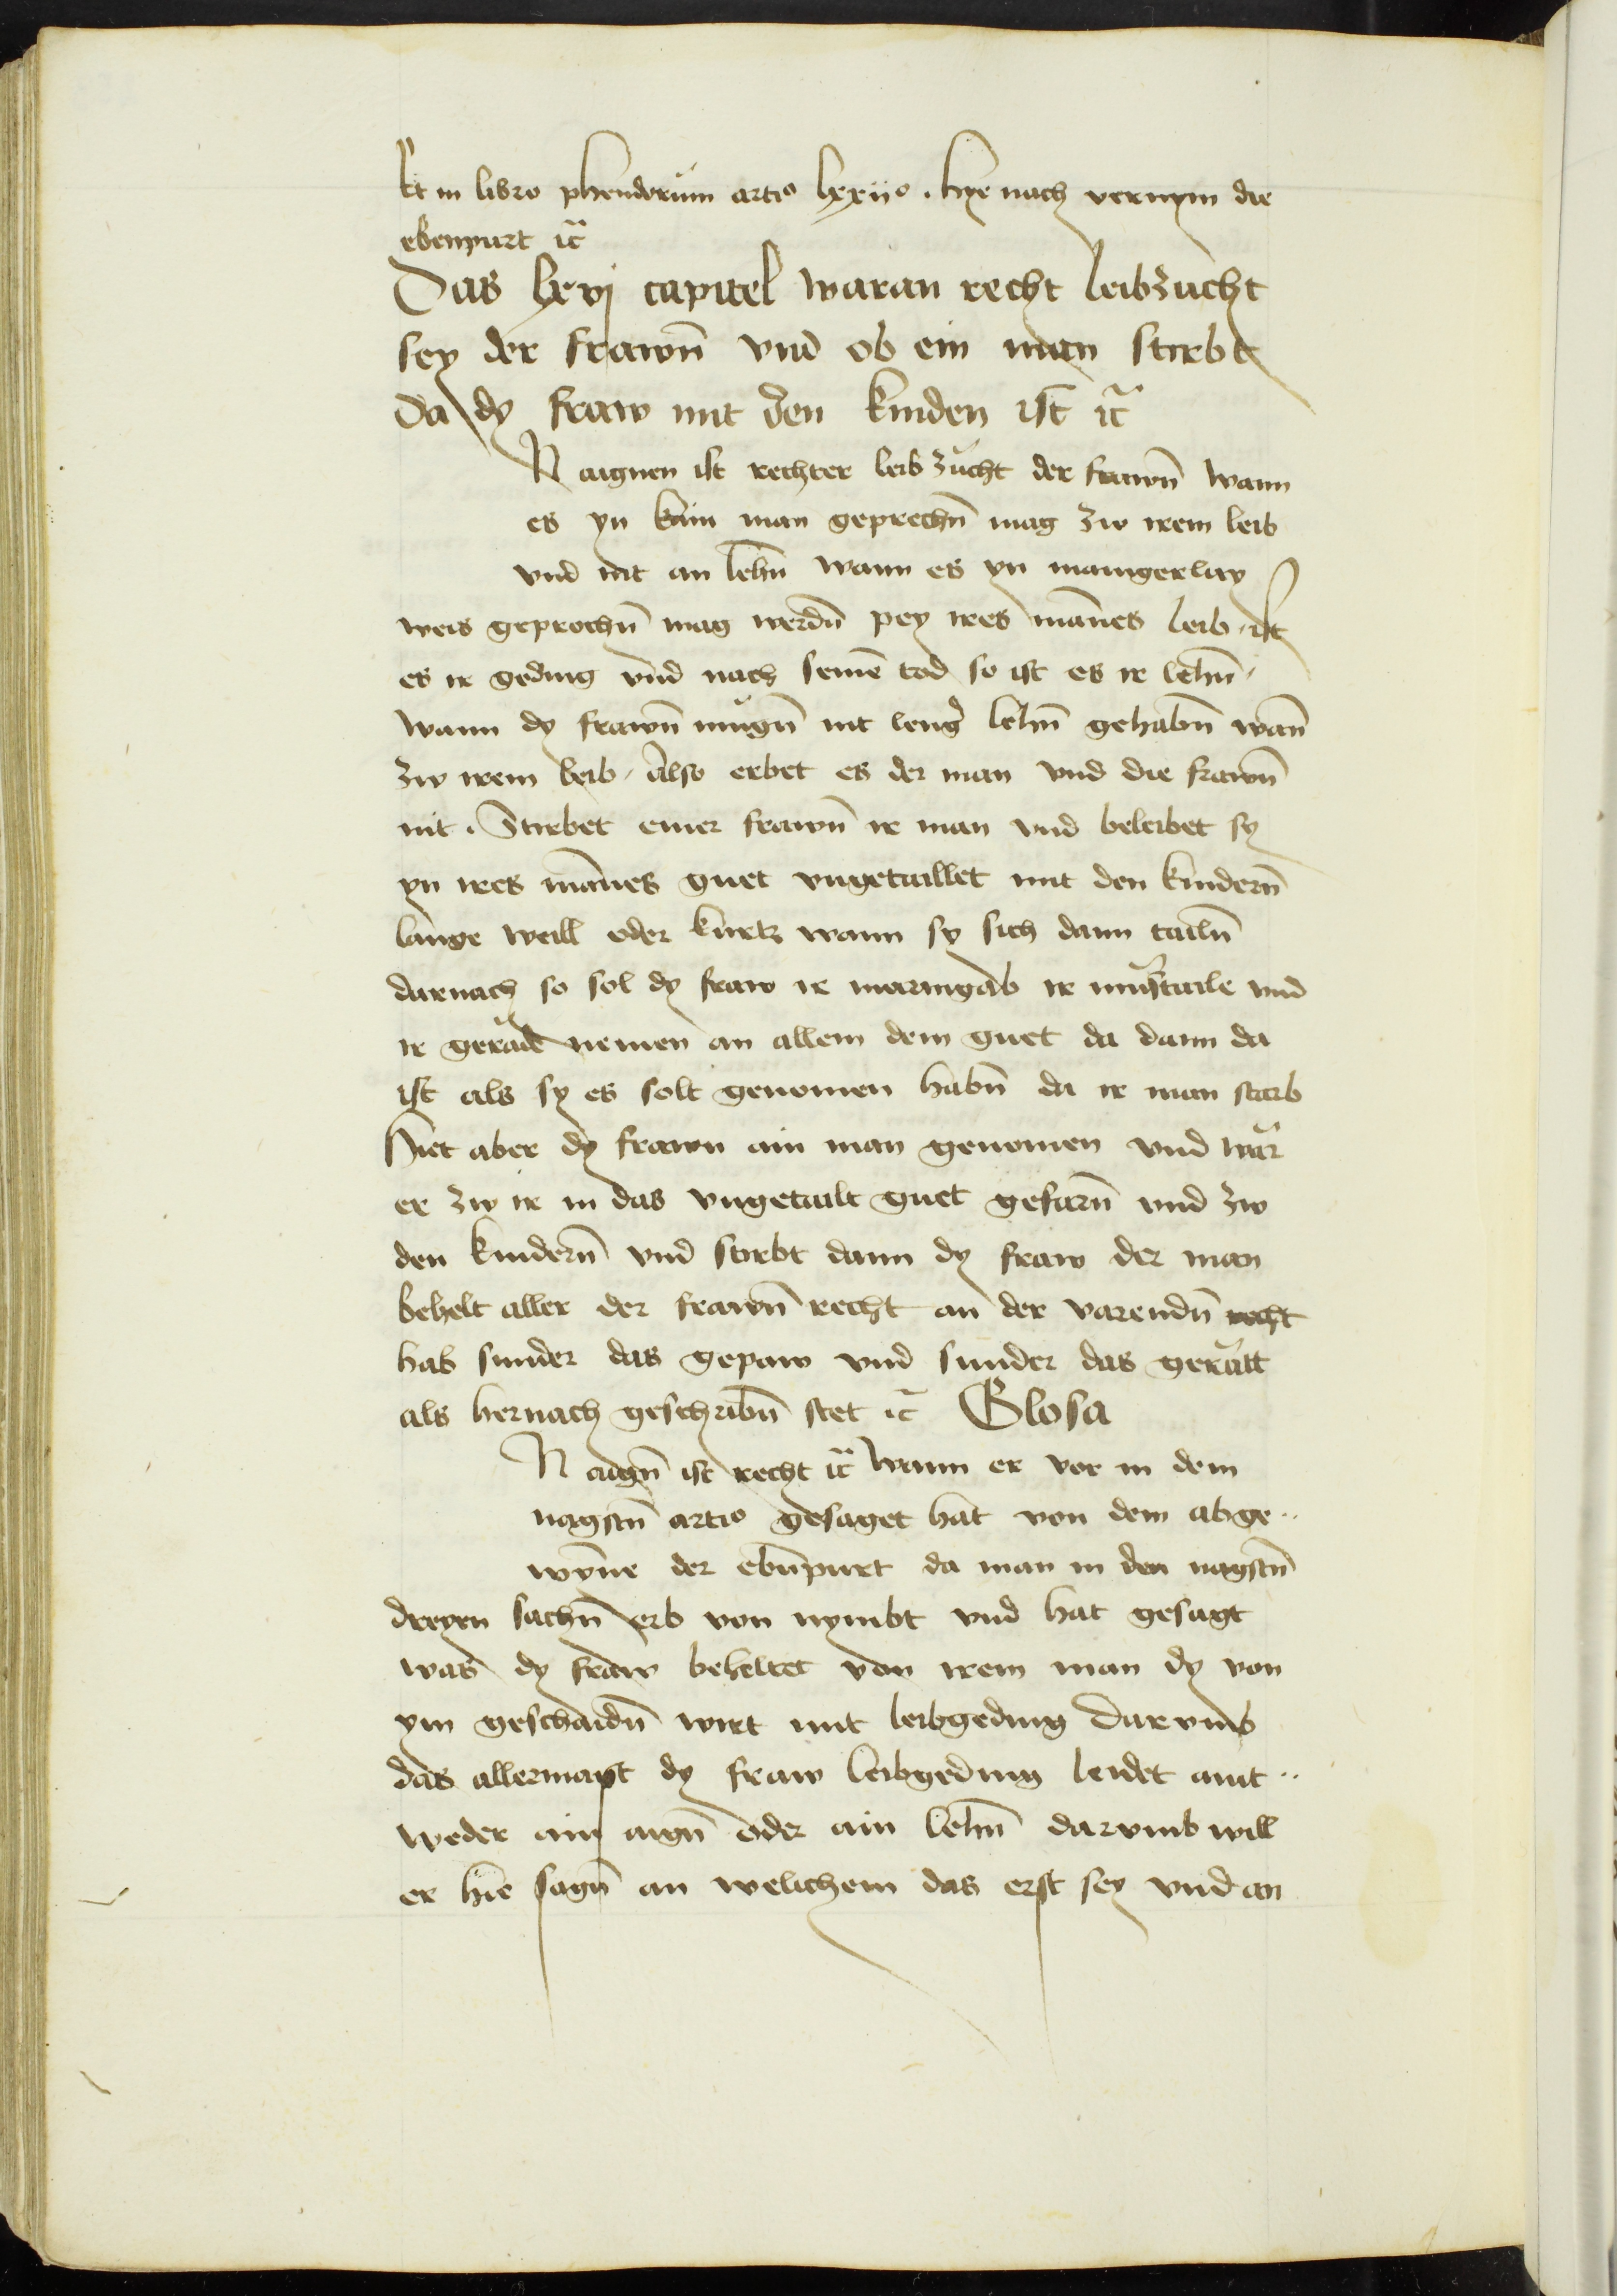 Et in libro phendorum artio lxxiio . hye nach vernym die
ebenpurt ic̃
Das lxvj capitel waran recht leibzucht
sey der frawn̄ vnd ob ein man stirbt
da dy fraw mit den kinden ist ic̃
N aignen ist rechter leib zucht der frawn̄ wann
es yn kain man geprechn̄ mag zw irem leib
vnd nit an lehn̄ wann es yn maingerlay
weis geprochn̄ mag werdn̄ pey ires mānes leib ist
es ir geding vnd nach seinē tod so ist es ir lehn̄ /
wann dy frawn̄ mugn̄ nit leng̉ lehn̄ gehabn̄ wan̄
zw irem leib / Also erbet es der man vnd die frawn̄
nit . Stirbet einer frawn̄ ir man vnd beleibet sy
yn ires mānes guet vngetaillet mit den kindern̄
lange weill oder kurtz wann sy sich dann tailn̄
darnach so sol dy fraw ir maringab ir mustaile vnd
ir gerade nemen an allem dem guet da dann da
ist als sy es solt genomen habn̄ da ir man starb
Hiet aber dy frawn ain man genomen vnd wär
er zw ir in das vngetailt guet gefarn̄ vnd zw
den kindern̄ vnd stirbt dann dy fraw der man
behelt aller der frawn̄ recht an der varendn̄ recht
hab sunder das gepaw vnd sunder das geratt
als hernach geschribn̄ stet ic̃ Glosa
N aign̄ ist recht ic̃ wann er vor in dem
nagstn̄ artio gesaget hat von dem abge..
wyn̄e der ebn̄purt da man in den nagstn̄
dreyen sachn̄ erb von nymbt vnd hat gesagt
was dy fraw beheltet von irem man dy von
ym geschaidn̄ wirt mit leibgeding Darvmb
das allermayst dy fraw leibgeding leidet aint ..
weder ain aign̄ oder ain lehn̄ darvmb will
er hie sagn̄ an welichem das erst sey vnd an